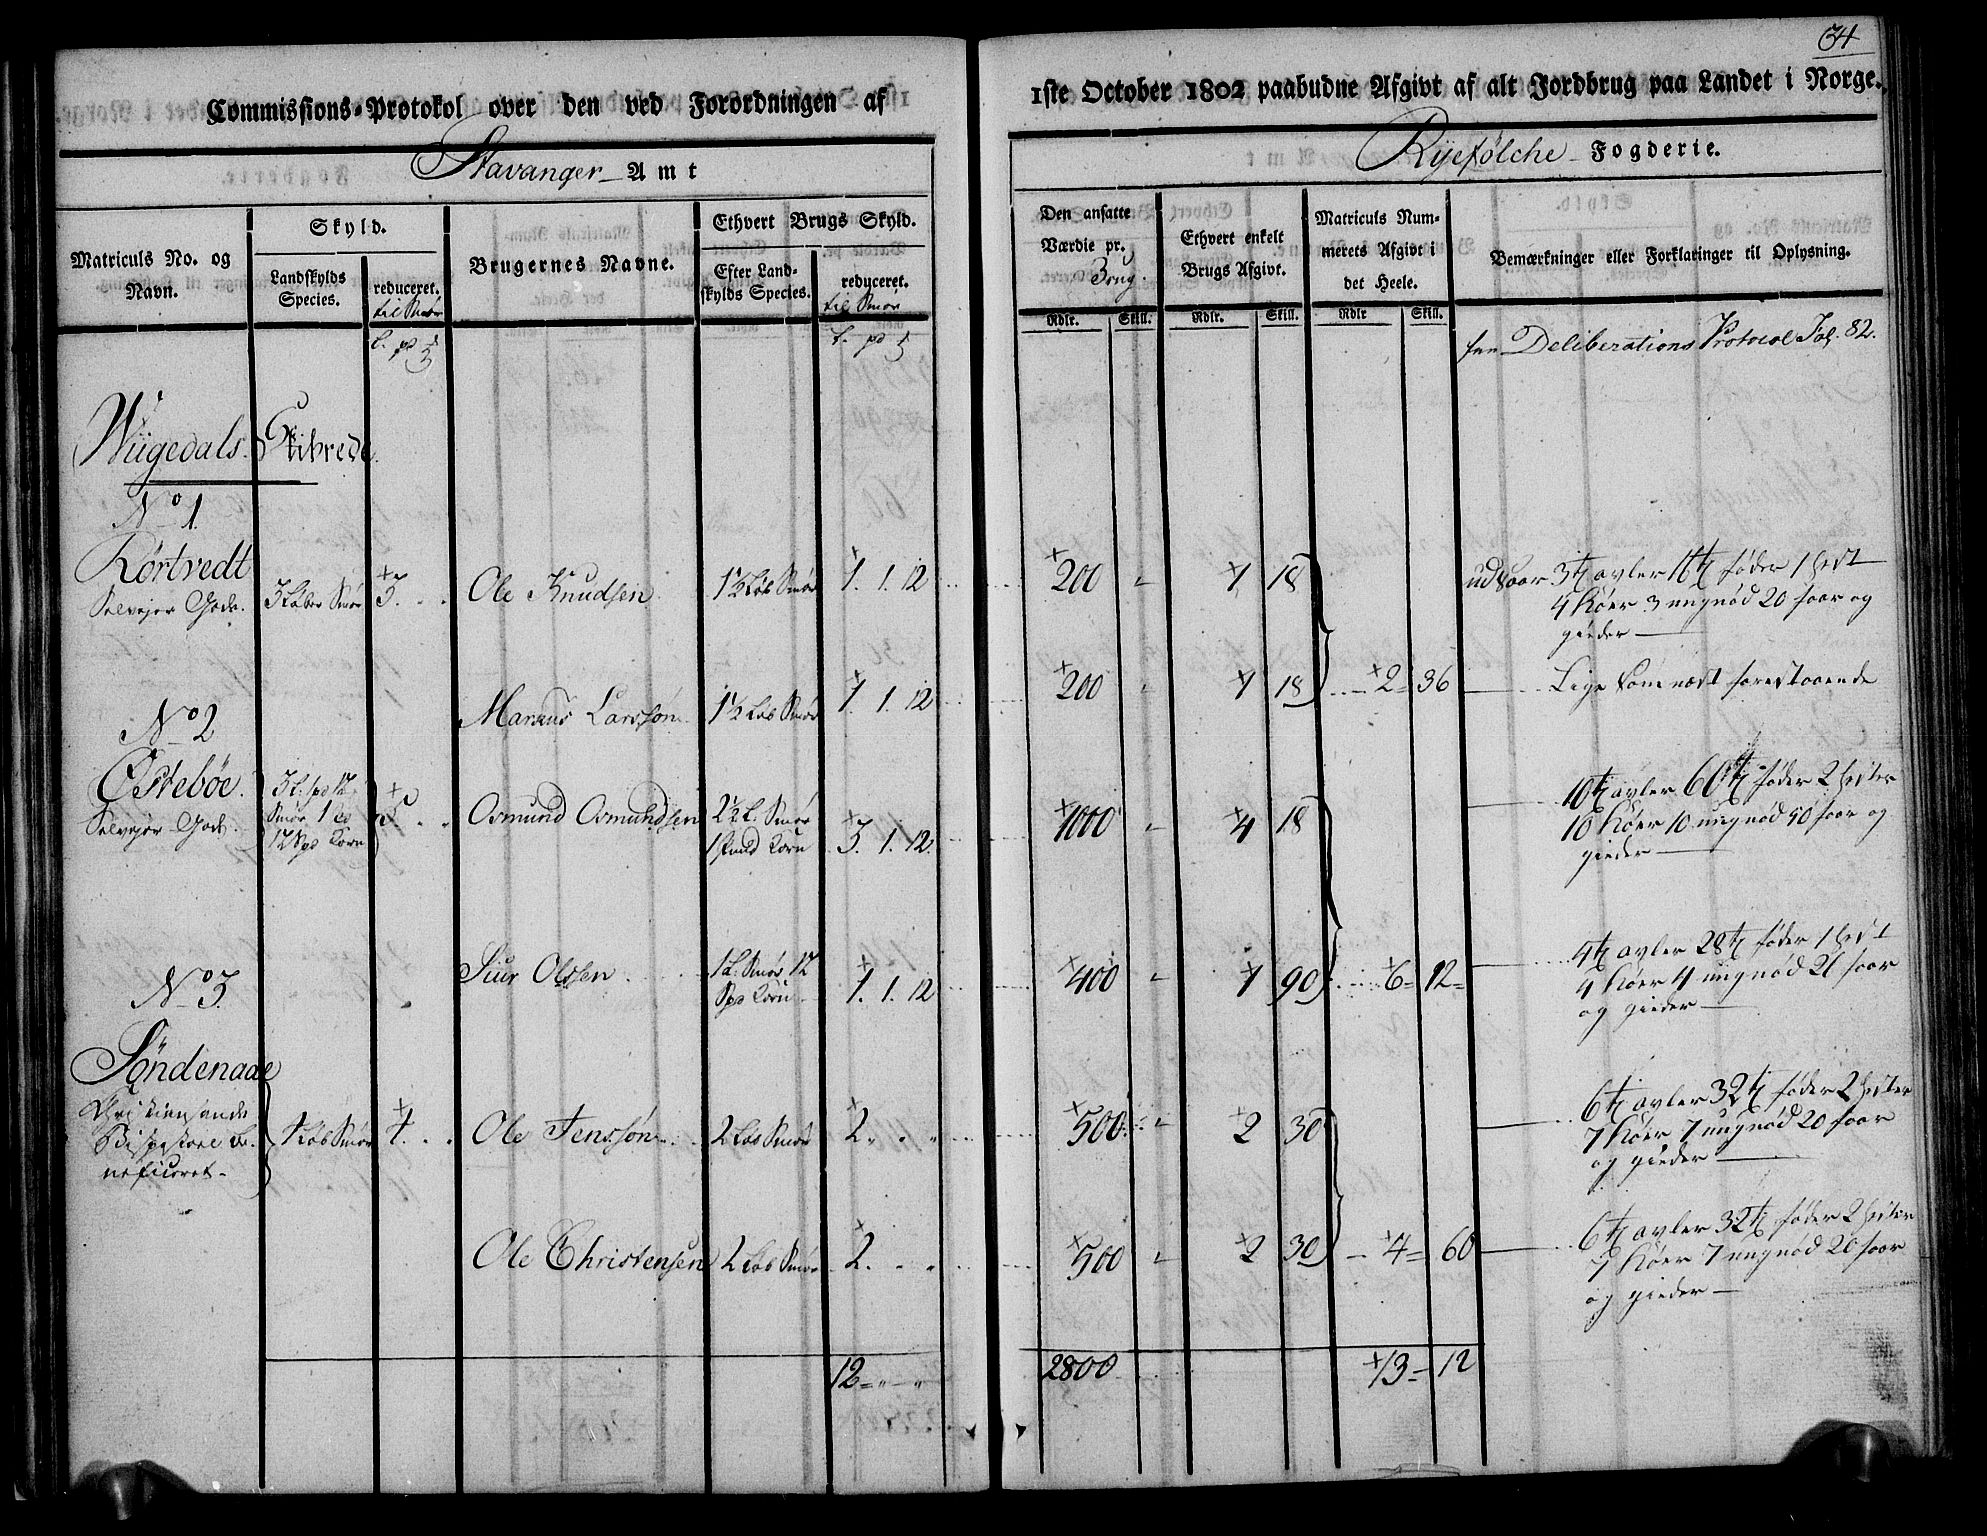 34
Commissions-Protokol over den ved Forordningen af 1ste October 1802 paabudne Afgivt af alt Jordbrug paa Landet i Norge.
Stavanger Amt
Ryefølche Fogderie.
Matriculs No. og Navn.
Skyld.
Landskylds Species.
reduceret. til Smør
Brugernes Navne.
Ethvert Brugs Skyld.
Efter Landskylds Species.
reduceret. til Smør
Den ansatte Værdie pr. Brug.
Ethvert enkelt Brugs Afgivt.
Matriculs Nummerets Afgivt i det Heele.
Bemærkninger eller Forklaringer til Oplysning.
Rdlr. Skill. Rdlr. Skill. Rdlr Skill.
Deliberations Protocol Fol. 82.
Wiigedals Skibrede
No 1
Rørtvedt
Selvejer Gods. 3 Løber Smør 3. Ole Knudsen 1½ Løb Smør 1. 1. 12 200 1 18 udsaar 3 t avler 16 t føder 1 hest
4 Køer 3 ungnød 20 faar og
gieder
Marcus Larssøn 1½ Løb Smør 1. 1. 12 200 1 18 2 = 36 Lige som næst forestaaende
No 2
Østebøe
Selvejer Gods. Smør
Korn
Osmund Osmundsen 2½ L. Smør
1 pund Korn 3. 1. 12. 1000 4 18 10 t avler 60 t føder 2 hester
10 Køer 10 ungnød 50 faar og
gieder
Siur Olssen 1 L. Smør 12
Korn 1. 1. 12 400 1 90 6 = 12 = 4 t avler 28 t føder 1 hest
4 Køer 4 ungnød 20 faar
og gieder
No 3
Søndenaae
Christiansands
Bispestoel Be-
neficeret 4 Løb Smør 4. Ole Jenssøn 2 Løb Smør 2 500 2 30 6 t avler 32 t føder 2 hester
7 Køer 7 ungnød 20 faar
og gieder
Ole Christensen 2 Løb Smør 2. 500 2 30 4 = 60 6 t avler 32 t føder 2 hester
7 Køer 7 ungnød 20 faar
og gieder
12 = " = " 2800 13 = 12